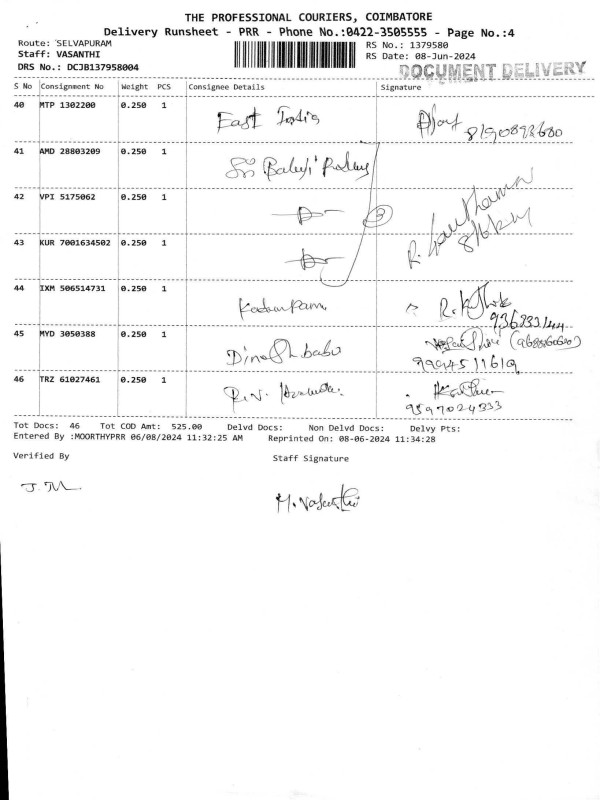 THE PROFESSIONAL COURIERS, COIMBATORE
Delivery Runsheet - PRR - Phone No.:0422-3505555 - Page No.:4
Route: SELVAPURAM
Staff: VASANTHI
DRS No.: DCJB137958004
RS No.: 1379580
RS Date: 08-Jun-2024
DOCUMENT DELIVERY
S No Consignment No Weight PCS Consignee Details Signature
40 MTP 1302200 0.250 1 East India 8190892680
41 AMD 28803209 0.250 1 Sri Balaji
42 VPI 5175062 0.250 1 3
43 KUR 7001634502 0.250 1 R. 8/6/24
44 IXM 506514731 0.250 1 R.
45 MYD 3050388 0.250 1 Dinesh babu
9994511619
46 TRZ 61027461 0.250 1 R.V.
9597024333
Tot Docs: 46 Tot COD Amt: 525.00 Delvd Docs: Non Delvd Docs: Delvy Pts:
Entered By :MOORTHYPRR 06/08/2024 11:32:25 AM Reprinted On: 08-06-2024 11:34:28
Verified By Staff Signature
M. Vasanthi